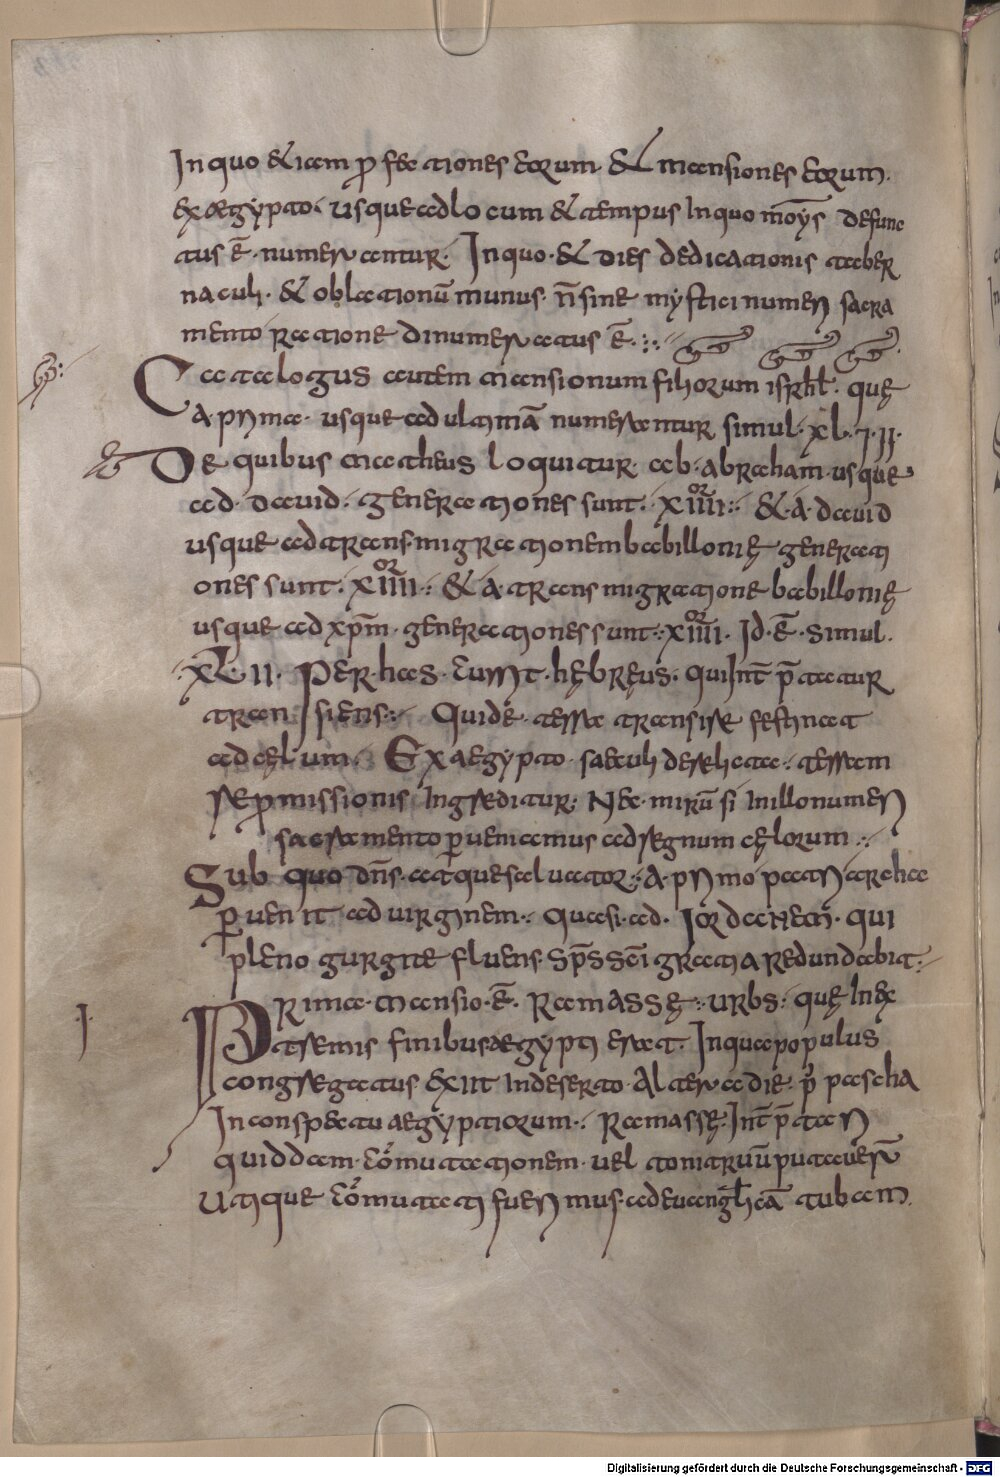 In quo & item ꝓfectiones eorum. & mansiones eorum.
ex ægypto. usque ad locum & tempus In quo moȳs defunc
tus ē. numerantur. In quo. & dies dedicationis taber
naculi. & oblationū munus. ñ sine mystici numeri sacra
mento ratione dinumeratus ē
Catalogus autem mansionum filiorum isrħl. quę
A prima. usque ad ultimā numerantur simul. XL. 7. II.
De quibus matheus loquitur. ab. abraham. usque
ad. david. generationes sunt. XIIII. & A. david
usque ad transmigrationem babillonię generati
ones sunt. XIIII. & A. transmigratione babillonię
usque ad xp̄m. generationes sunt. XIIII. Id. ē. simul.
XL. II. Per has. currit. hębręus. qui Int̄ p̄tatur
transiens. Qui de. terra transire festinat
ad cęlum. Ex aegypto. saeculi derelicta. terram
repromissionis Ingreditur. Nec. mirū si In illo numeri
sacramento ꝑueniamus ad regnum cęlorum
Sub quo dn̄s. atque saluator. A. primo patriarcha
ꝑuenit ad uirginem. Quasi. ad. Iordanem. qui
pleno gurgite fluens. sp̄s sc̄i gratia redundabit.
.I.
Prima. mansio. ē. Ramassę. urbs. quę In ex
tremis finibus aegypti erat. In qua populus
congregatus exiit In deserto. Altera die. p̄ pascha
In conspectu aegyptiorum. Ramassę. Int̄ p̄tari
quiddam. cōmutationem. uel tonitruū putaverūt
Utique cōmutati fuerimus. ad euangl̄icā tubam.
Digitalisierung gefördert durch die Deutsche Forschungsgemeinschaft - DFG